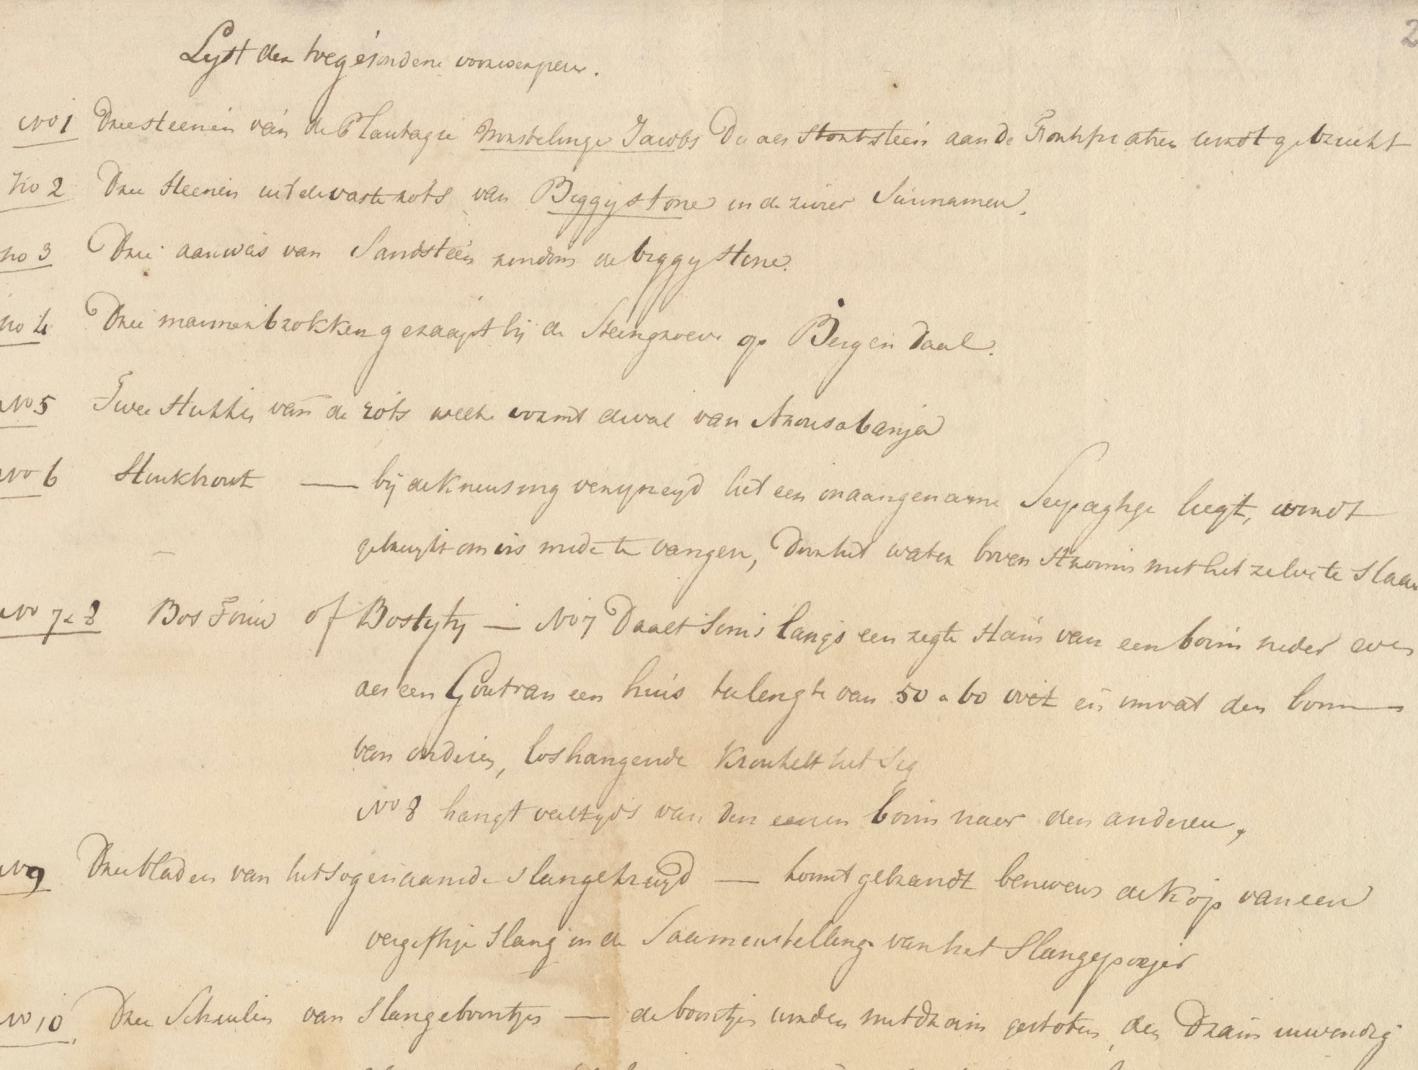 2
Lyst der weg gesondene voorwerpen.
No 1 Drie steenen van de Plantagie Worstelinge Jacobs Die als stortsteen aan de Frontspicatien wordt gebruikt
No 2 Drie steenen uit de vaste rots van Biggystone in de rivier Surinamen.
No 3 Drie aanwas van Sandsteen rondom de biggystone.
No 4 Drie marmer brokken geraapt bij de Steengroeve op Bergendaal.
No 5 Twee stukkes van de rots welke vormt de val van Arousabanja
No 6 Stinkhout — bij de Kneusing verspreyd het een onaangename lugt, wordt
gebruykt om vis mede te vangen, Door het water boven strooms met het zelve te slaan
No 7 & 8 Bos Touw of Bostyty — No 7 Daalt soms langs een regte stam van een boom neder even
als een Gout van een huis ter lengte van 50 a 60 voet en omvat den boom
van onderen, loshangende kronkelt het sig
No 8 hangt altyds van den eenen boom naar den anderen,
No 9 Drie bladen van het sogenaamde slangekruyd — komt gebrandt benevens de Kop van een
vergiftige slang in de Saamenstelling van het Slangepoejer
No 10 Drie Schulen van Slangeboontjes — de boontjes worden met dram gestoten, den Dram inwendig